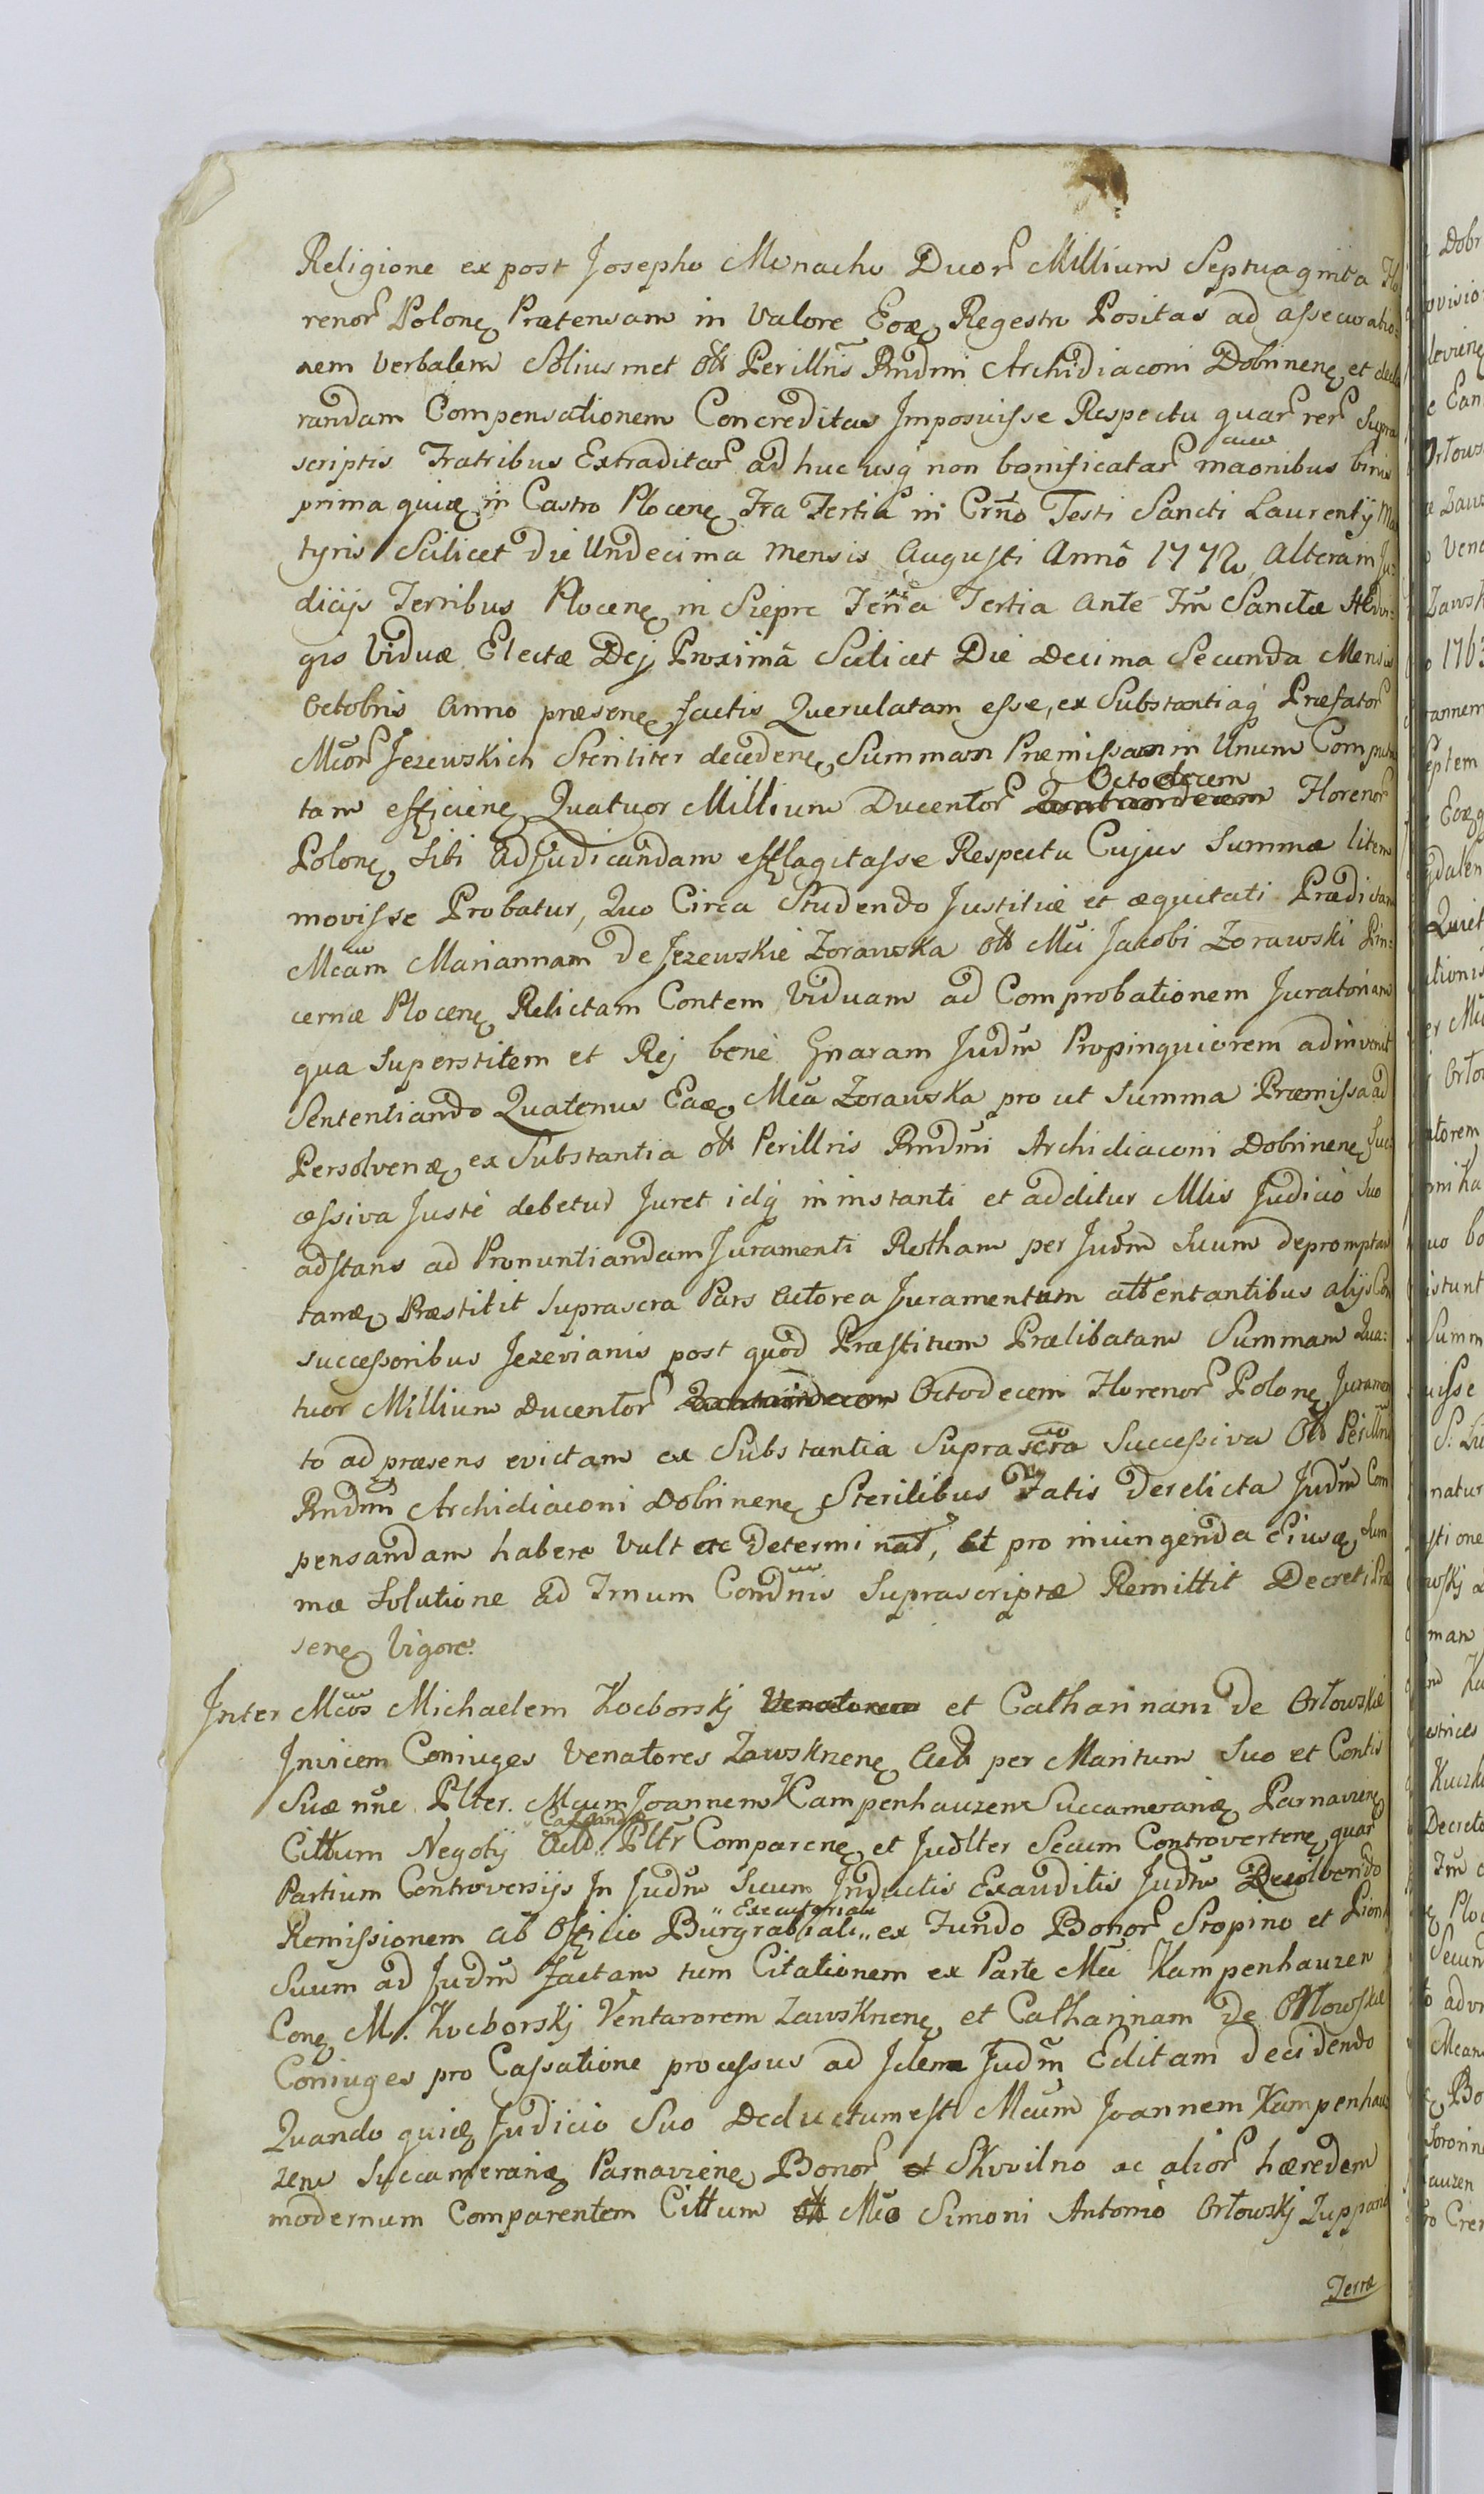 Religione ex post Josepho Monacho Duorˢ Millium Septuaginta Flo
renorˢ Polonę Prætensam in Valore Eoæ Regestro Positas ad assecuratio:
nem Verbalem Solius met olt Perillris Rndmi Archidiaconi Dobrinenę et decla
randam Compensationem Concreditas Imposuisse Respectu quarˢ rerˢ Supra
scriptis Fratribus Extraditarˢ ad huc usq́ non bonificatarˢ maonibus binis
prima quidę in Castro Plocenę Fra Tertia in Crño Festi Sancti Laurentÿ Mar
tyris Scilicet die Undecima Mensis Augusti Anno 1772 Alteram Ju:
dicijs Terribus Plocenę in Sieprc Feria Tertia Ante Fm̃ Sanctæ Hedvi:
gis Viduæ Electæ Dej Proximâ Scilicet Die Decima Secunda Mensis
Octobris Anno præsenę factis Querulatam esse, ex Substantiaq́ Præfatorˢ
Mcorˢ Jezewskich Steriliter decedenę Summam Præmissam in Unum Compu
tam efficienę Quatuor Millium Ducentorˢ Octodecem Florenorˢ
Polonę sibi Adjudicandam efflagitasse Respectu Cujus Summæ litem
movisse Probatur, Quo Circa Studendo Justitiæ et æquitati Prædictam
Mcam Mariannam De Jezewskie Zorawska olt Mci Jacobi Zorawski Pin:
cernæ Plocenę Relictam Contem Viduam ad Comprobationem Juratoriam
qua Superstitem et Rej bene Gnaram Judm̃ Propinquiorem adinvenit
Sententiando Quatenus Eadę Mca Zorawska pro ut Summa Præmissa ad
Persolvendę ex Substantia olt Perillris Rndmi Archidiaconi Dobrinenę Suc
cessiva Justè debetur Juret idq́ in instanti et additur Mlis Judicio Suo
adstans ad Pronuntiandam Juramenti Rotham per Judm̃ Suum depromptam
tandę Præstitit Suprascra Pars Actorea Juramentum attentantibus alijs Con
successoribus Jezevianis post quod Præstitum Prælibatam Summam Qua:
tuor Millium Ducentorˢ Octodecem Florenorˢ Polonę Juramen
to ad præsens evictam ex Substantia Suprascra Successiva Olt Perillris
Rndmi Archidiaconi Dobrinenę Sterilibus Fatis Derelicta Judm̃ Com
pensandam habere Vult etc Determinat, Et pro iniungenda Eiusdę Sum
mæ Solutione ad Trnum Condnis Suprascriptæ Remittit Decreti Præ
senę Vigore.
Inter Mcos Michaelem Kocborskj Venatorem et Catharinam de Orłowskie
Invicem Coniuges Venatores Zawskrzenę Act per Maritum Suo et Contis
Suæ nñe Plter. Mcum Joannem Kampenhauzen Succameranidę Parnavienę
Cittum Negotij Cassandi Act. Pltr Comparenę et Judlter Secum Controvertenę quarˢ
Partium Controversijs In Judm̃ Suum Inductis Exauditis Judm̃ Resolvendo
Remissionem ab Officio Burgrabiali „ Executoriali „ ex Fundo Bonorˢ Stopino et
Suum ad Judm̃ factam tum Citationem ex Parte Mci Kampenhauzen
Conę M. Kocborskj Ventarorem Zawskrzenę et Catharinam de Orłowskie
Coniuges pro Cassatione processus ad Idem Judm̃ Editam decidendo
Quando quidę Judicio Suo Deductum est Mcum Joannem Kampenhau
zem Succameranidę Parnavienę Bonorˢ Skwilno ac aliorˢ hæredem
modernum Comparentem Cittum olt Mco Simoni Antonio Orłowskj Zuppario
Terræ